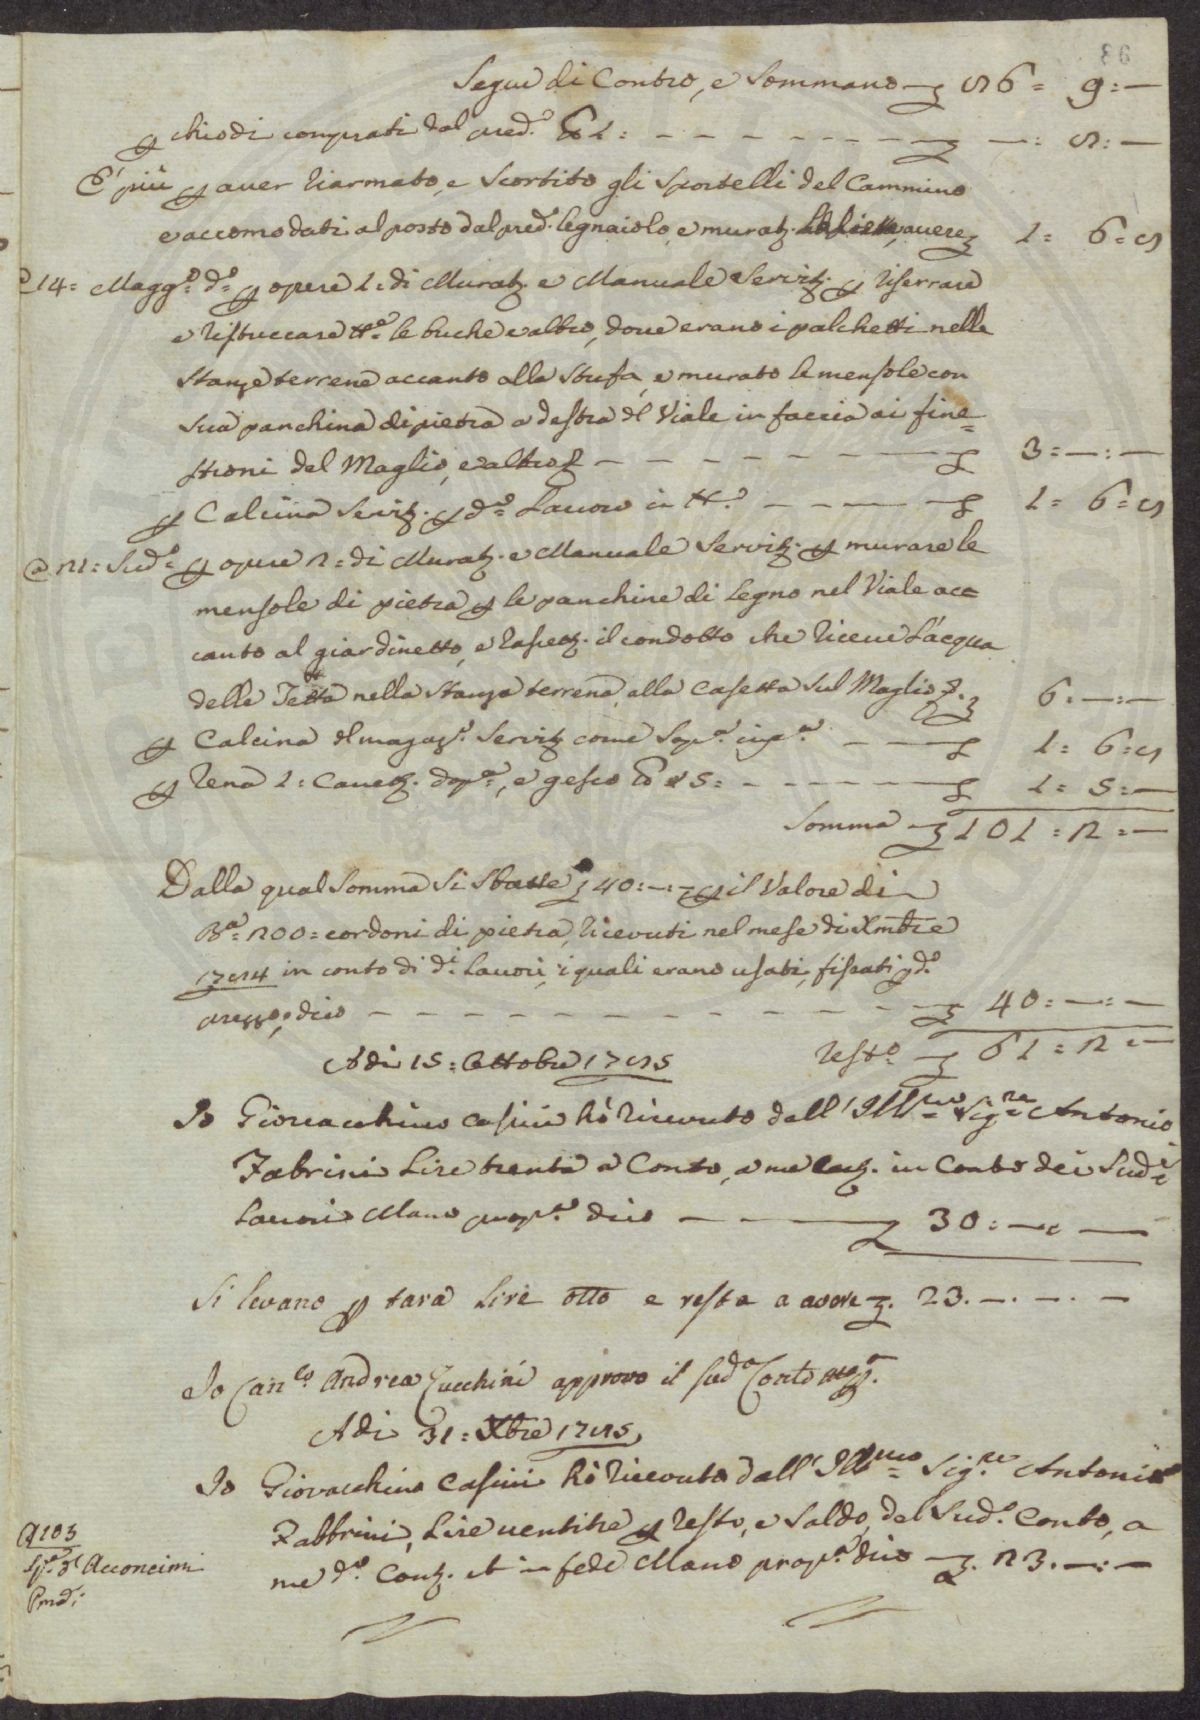 93
Segue di Contro, e Sommano 86 = 9:—
p chiodi comprati dal pred.° lb 1: — — — — —: 8:—
E più p aver riarmato, e scortito gli Sportelli del Cammino
e accomodati al posto dal pred.° legnaiolo, e murat. avere 1= 6=8
@ 14= Magg.° d.° p opere 1= di Murat. e Manuale Servit. p riserrare
e ristuccare tt.e le buche e altro, dove erano i palchetti nelle
stanze terrene accanto alla Stufa, e murato le mensole con
sua panchina di pietra a destra del Viale in faccia ai fine=
stroni del Maglio, e altro — — — — — — 3=—:—
p Calcina Servit. p d.° Lavoro in tt.° — — — — 1= 6=8
@ 21= Sud.° p opere 2= di Murat. e Manuale Servit. p murare le
mensole di pietra p le panchine di Legno nel Viale acc=
canto al giardinetto, e rasett. il condotto che riceve L'acqua
delle Tetta nella stanza terrena, alla Casetta sul Maglio 6.—:—
p Calcina del magaz.° Servit. come Sop.a — — 1= 6=8
p rena 1= Canet. dop.a, e gesso lb 85= — — — — — 1= 5:—
Somma 101=2=—
Dalla qual Somma si sbatte 40:—:— p il Valore di
B.a=200= cordoni di pietra, ricevuti nel mese di Xmbre
1784 in conto di d.i Lavori, i quali erano usati, fissati p d.°
prezzo, dico — — — — — — — — — — 40:—:—
Adi 15= Ottobre 1785 rest.° 61=2=—
Io Giovacchino Casini hò ricevuto dall' Ill.mo Sig.re Antonio
Fabrini Lire trenta a Conto, a me cont. in Conto dei Sud.i
Lavori Mano prop.a dico — — 30:—:—
Si levano p tara Lire otto e resta a avere 23.—.—.—
Io Can.co Andrea Zucchini approvo il sud.o Conto
Adi 31= Xbre 1785
Io Giovacchino Casini hò ricevuto dall' Ill.mo Sig.re Antonio
Fabbrini, Lire ventitre p resto, e Saldo, del Sud.° Conto, a
me d.° Cont. et in fede Mano prop.a dico 23.—:—
@ 103
Sp.e d' Acconcimi
Pmd.i